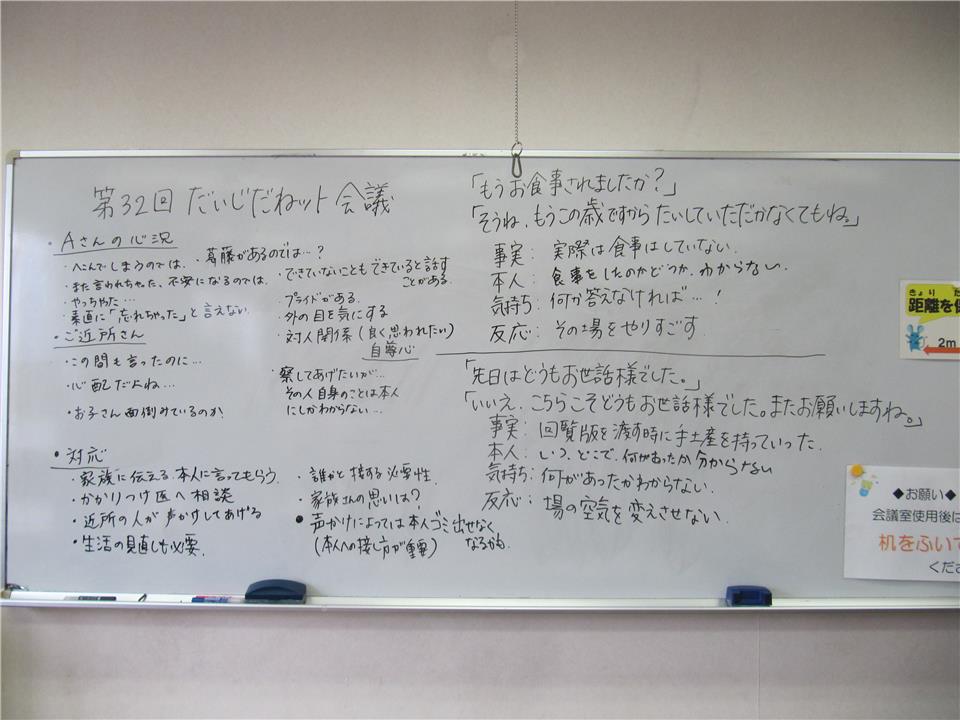 第32回 だいじだねット会議
・Aさんの心況
・へこんでしまうのでは、
・葛藤があるのでは…？
・また言われちゃった、不安になるのでは
・やっちゃった…
・素直に「忘れちゃった」と言えない
・できていないこともできていると話す
ことがある
・プライドがある
・外の目を気にする
・対人関係（良く思われたい）
自尊心
・察してあげたいが…
その人自身のことは本人
にしかわからない…
・ご近所さん
・この間も言ったのに…
・心配だよね…
・お子さん面倒みているのか?
・対応
・家族に伝える 本人に言ってもらう
・かかりつけ医へ相談
・近所の人が声かけしてあげる
・生活の見直しも必要、
・誰かと接する必要性
・家族さんの思いは？
●声かけによっては本人ゴミ出せなく
なるかも
（本人への接し方が重要）
「もうお食事されましたか？」
「そうね、もうこの歳ですからたいしていただかなくてもね。」
事実：実際は食事はしていない、
本人：食事をしたのかどうか、わからない、
気持ち：何か答えなければ…！
反応：その場をやりすごす
「先日はどうもお世話様でした。」
「いいえ、こちらこそどうもお世話様でした。またお願いしますね。」
事実：回覧版を渡す時に手土産を持っていった、
本人：いつ、どこで、何があったか分からない
気持ち：何があったかわからない、
反応：場の空気を変えさせない、
きょり
距離を
2m
◆お願い◆
会議室使用後は
机をふいて
くださ